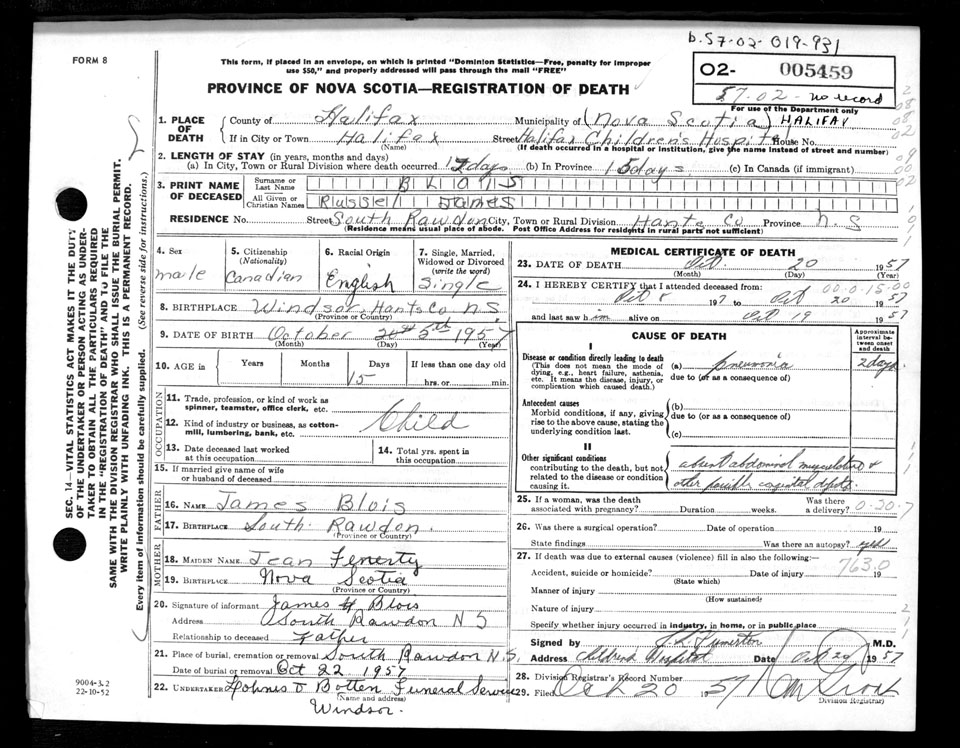 b.57-02-019-931
FORM 8
This form, if placed in an envelope, on which is printed "Dominion Statistics—Free, penalty for improper
use $50," and properly addressed will pass through the mail "FREE"
02- 005459
57-02- no record
For use of the Department only
HALIFAX
PROVINCE OF NOVA SCOTIA—REGISTRATION OF DEATH
1. PLACE OF DEATH
County of Halifax Municipality of (Nova Scotia)
If in City or Town Halifax Street Halifax Children's Hospital House No.
(Name) (If death occurred in a hospital or institution, give the name instead of street and number)
2. LENGTH OF STAY (in years, months and days)
(a) In City, Town or Rural Division where death occurred days (b) In Province 15 days (c) In Canada (if immigrant)
3. PRINT NAME OF DECEASED
Surname or Last Name BLOIS
All Given or Christian Names Russell James
RESIDENCE No. Street South Rawdon City, Town or Rural Division Hants Co Province N.S
(Residence means usual place of abode. Post Office Address for residents in rural parts not sufficient)
4. Sex male
5. Citizenship (Nationality) Canadian
6. Racial Origin English
7. Single, Married, Widowed or Divorced (write the word) Single
8. BIRTHPLACE Windsor, Hants Co N.S.
(Province or Country)
9. DATE OF BIRTH October 5th 1957
(Month) (Day) (Year)
10. AGE in Years Months Days If less than one day old
15 hrs. or min.
OCCUPATION
11. Trade, profession, or kind of work as spinner, teamster, office clerk, etc.
12. Kind of industry or business, as cotton-mill, lumbering, bank, etc.
Child
13. Date deceased last worked at this occupation
14. Total yrs. spent in this occupation
15. If married give name of wife or husband of deceased
FATHER
16. NAME James Blois
17. BIRTHPLACE South Rawdon
(Province or Country)
MOTHER
18. MAIDEN NAME Jean Fenerty
19. BIRTHPLACE Nova Scotia
(Province or Country)
20. Signature of informant James H Blois
Address South Rawdon N S
Relationship to deceased Father
21. Place of burial, cremation or removal South Rawdon N.S.
Date of burial or removal Oct 22 1957
22. UNDERTAKER Botten Funeral Service
(Name and address)
Windsor.
9004-3.2
22-10-52
MEDICAL CERTIFICATE OF DEATH
23. DATE OF DEATH Oct. 20 1957
(Month) (Day) (Year)
24. I HEREBY CERTIFY that I attended deceased from: 00-0-15-00
Oct 197 to Oct 20 1957
and last saw him alive on Oct 19 1957
CAUSE OF DEATH
Approximate interval between onset and death
I
Disease or condition directly leading to death
(This does not mean the mode of dying, e.g., heart failure, asthenia, etc. It means the disease, injury, or complication which caused death.)
(a) pneumonia 2 days
due to (or as a consequence of)
Antecedent causes
Morbid conditions, if any, giving rise to the above cause, stating the underlying condition last.
(b)
due to (or as a consequence of)
(c)
II
Other significant conditions
contributing to the death, but not related to the disease or condition causing it.
absent abdominal musculature &
other possible congenital defects.
25. If a woman, was the death associated with pregnancy? Duration weeks. Was there a delivery? 0-20-7
26. Was there a surgical operation? Date of operation 19
State findings Was there an autopsy? yes
27. If death was due to external causes (violence) fill in also the following:—
763.0
Accident, suicide or homicide? Date of injury 19
(State which)
Manner of injury
(How sustained)
Nature of injury
Specify whether injury occurred in industry, in home, or in public place
Signed by M.D.
Address Childrens Hospital Date Oct 1957
28. Division Registrar's Record Number
29. Filed Oct 20 1957
(Division Registrar)
SEC. 14—VITAL STATISTICS ACT MAKES IT THE DUTY
OF THE UNDERTAKER OR PERSON ACTING AS UNDER-
TAKER TO OBTAIN ALL THE PARTICULARS REQUIRED
IN THE "REGISTRATION OF DEATH" AND TO FILE THE
SAME WITH THE DIVISION REGISTRAR WHO SHALL ISSUE THE BURIAL PERMIT.
WRITE PLAINLY WITH UNFADING INK. THIS IS A PERMANENT RECORD.
Every item of information should be carefully supplied. (See reverse side for instructions.)